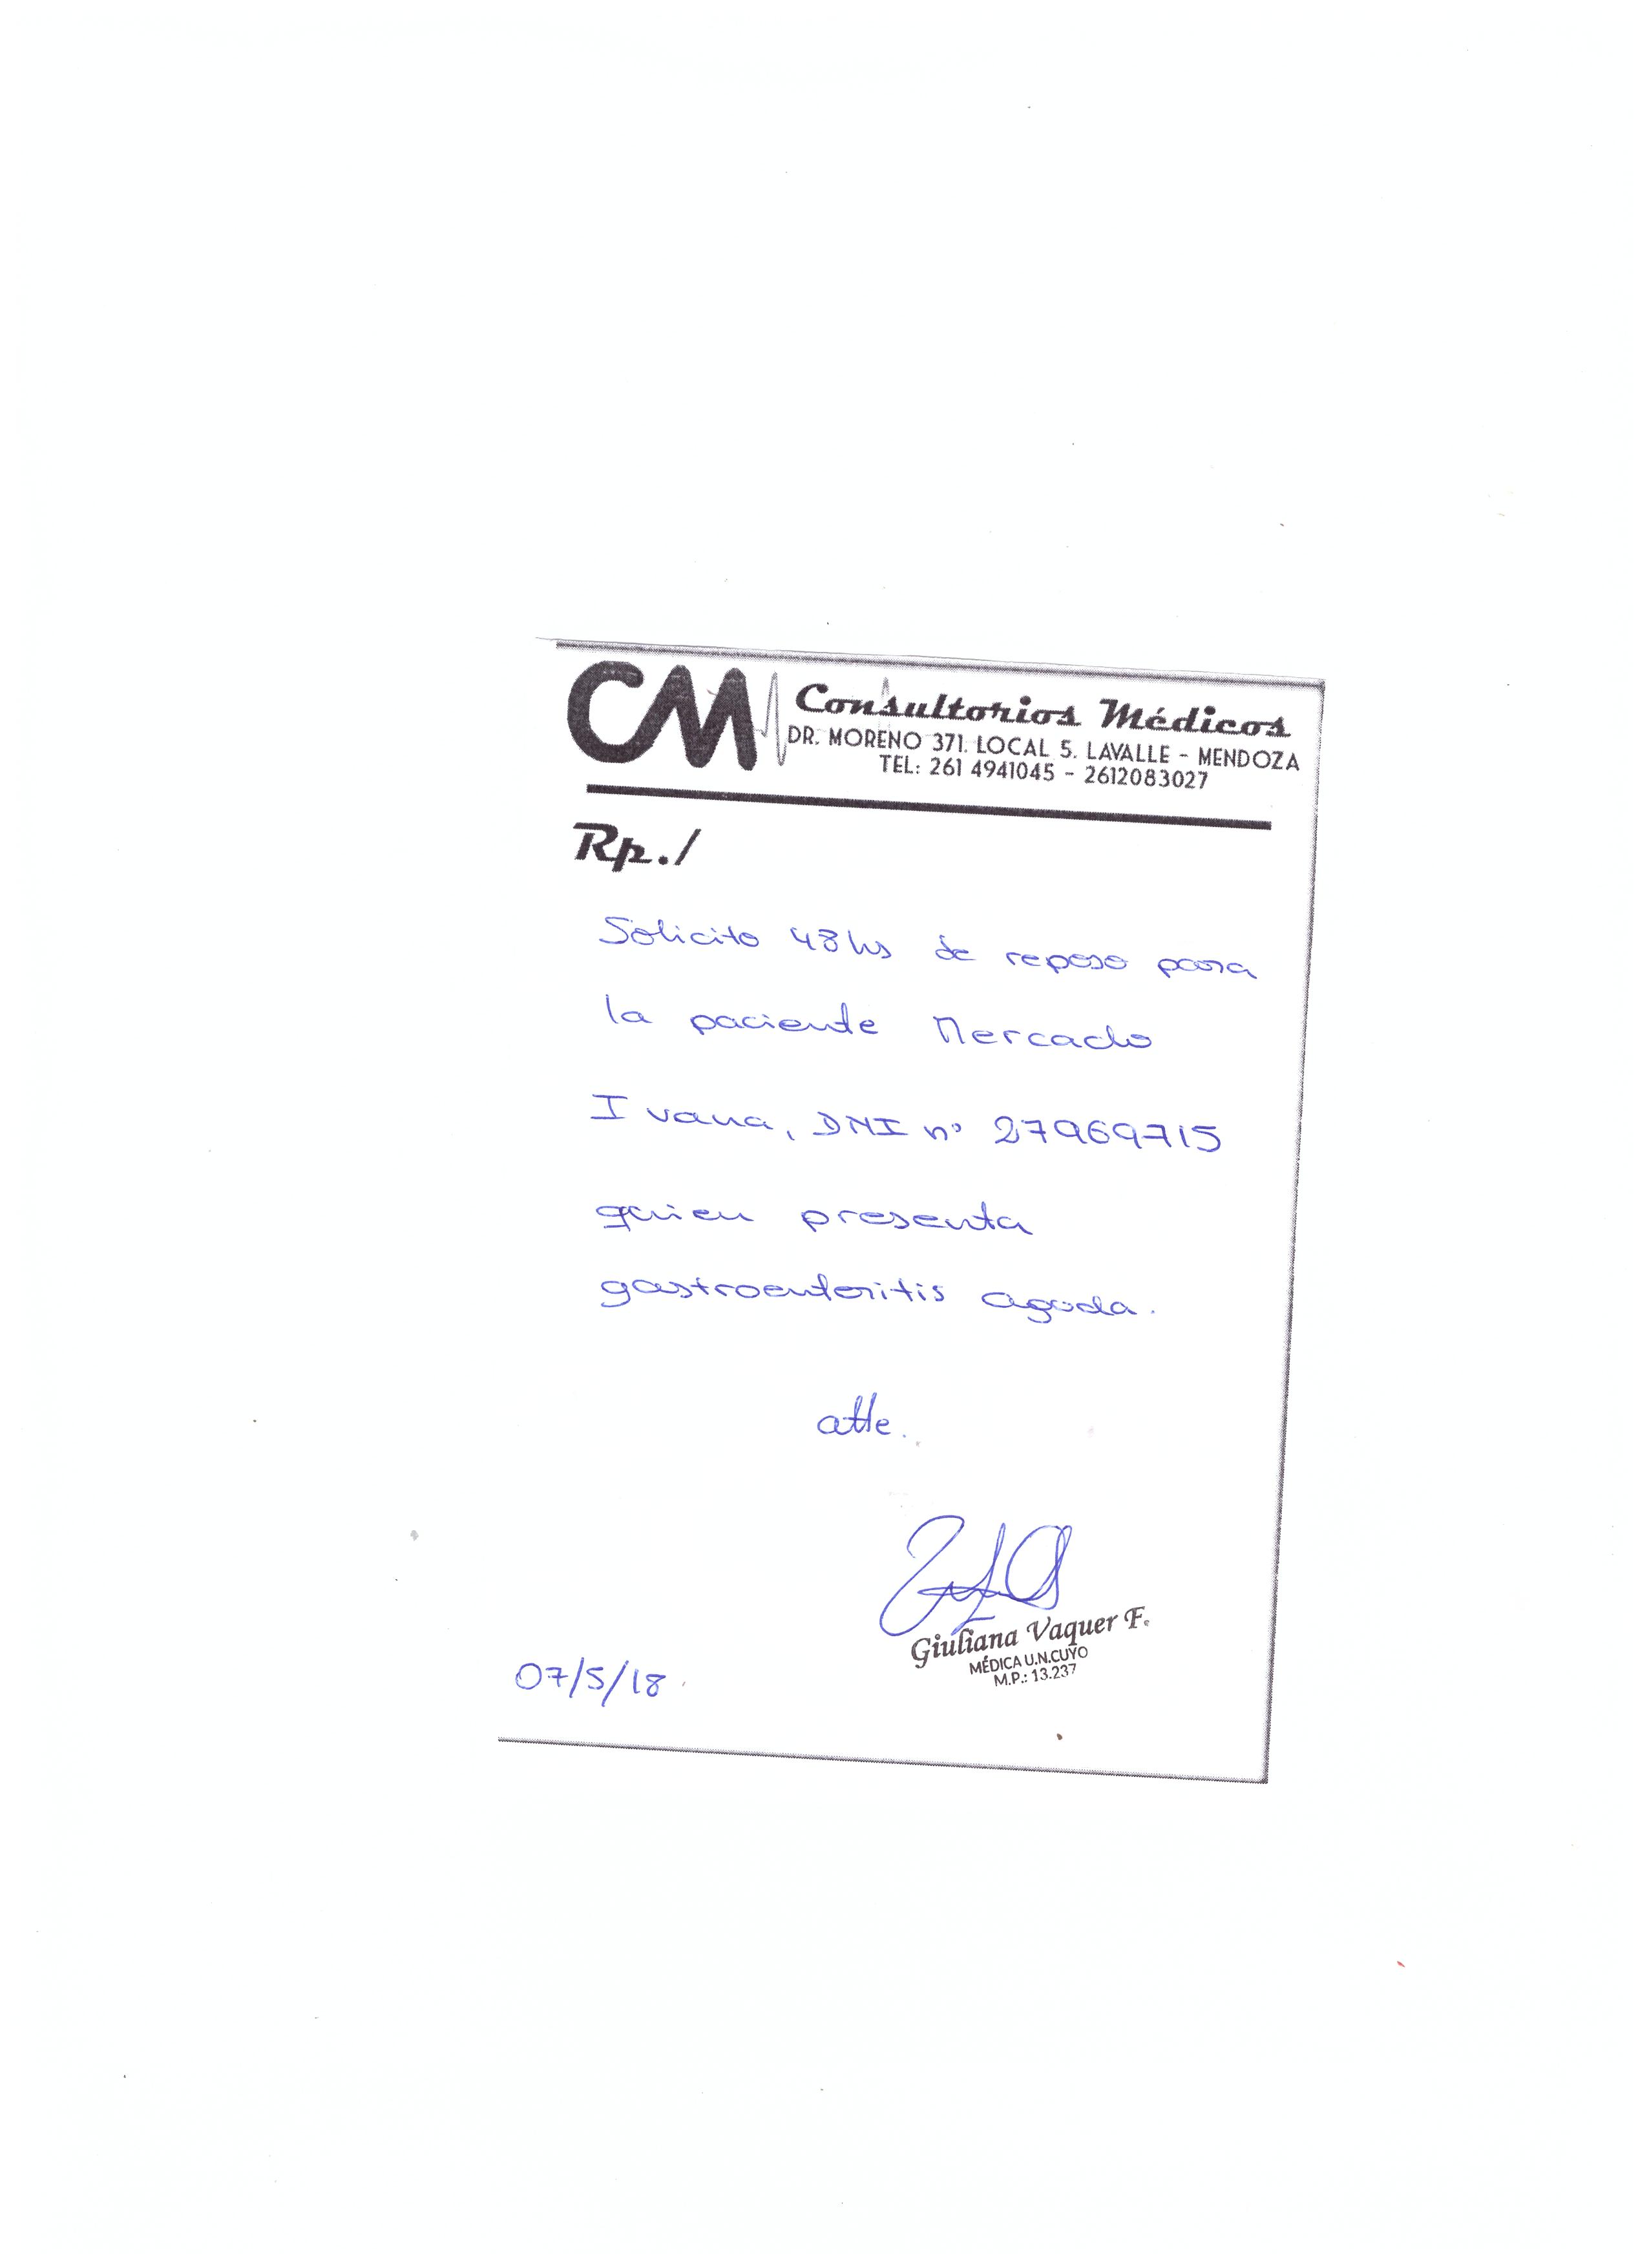 CM Consultorios Médicos
DR. MORENO 371. LOCAL 5. LAVALLE - MENDOZA
TEL: 261 4941045 - 2612083027
Rp./
Solicito 48hs de reposo para
la paciente Mercado
Ivana, DNI nº 27969715
quien presenta
gastroenteritis aguda.
atte.
Giuliana Vaquer F.
MÉDICA U.N.CUYO
M.P.: 13.237
07/5/18